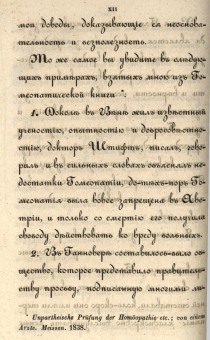 XII
мои доводы, доказывающіе ея неоснова-
тельность и безполезность.
То же самое вы увидите въ слѣдую-
щихъ примѣрахъ, взятыхъ мною изъ Го-
меопатической книги *.
1. Доколь въ Вѣнѣ жилъ извѣстный
ученостію, опытностію и добросовѣстно-
стію, докторъ Штифтъ, писалъ, гово-
рилъ и въ сильныхъ словахъ объяснялъ не-
достатки Гомеопатіи, до-тѣхъ-поръ Го-
меопатія была вовсе запрещена въ Ав-
стріи, и только со смертію его получила
свободу дѣйствовать ко вреду больныхъ.
2. Въ Ганноверѣ составилось-было об-
щество, которое представило правитель-
ству просьбу, подписанную многими ли-
Unpartheische Prüfung der Homöopathie etc.; von einem
Arzte. Meissen. 1838.